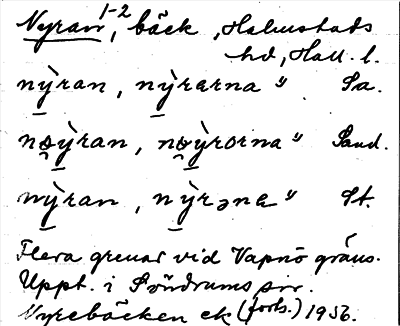 Nyran 1-2, bäck, Halmstads
hd, Hall. l.
nỳran, nỳrarna " Sa.
nỳran, nỳrorna " Sand.
nỳran, nỳrənɐ " St.
Flera grenar vid Vapnö gräns.
Uppt. i Söndrums srr.
Nyrebäcken ek (forts.) 1956.